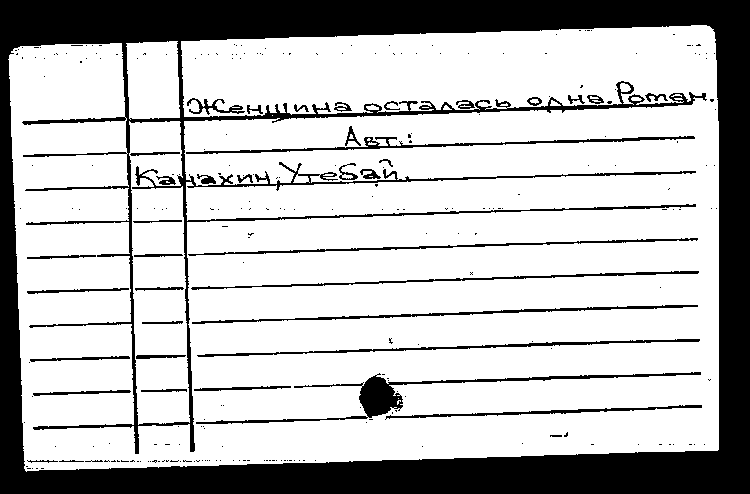 Женщина осталась одна. Роман.
Авт.:
Канахин, Утебай.